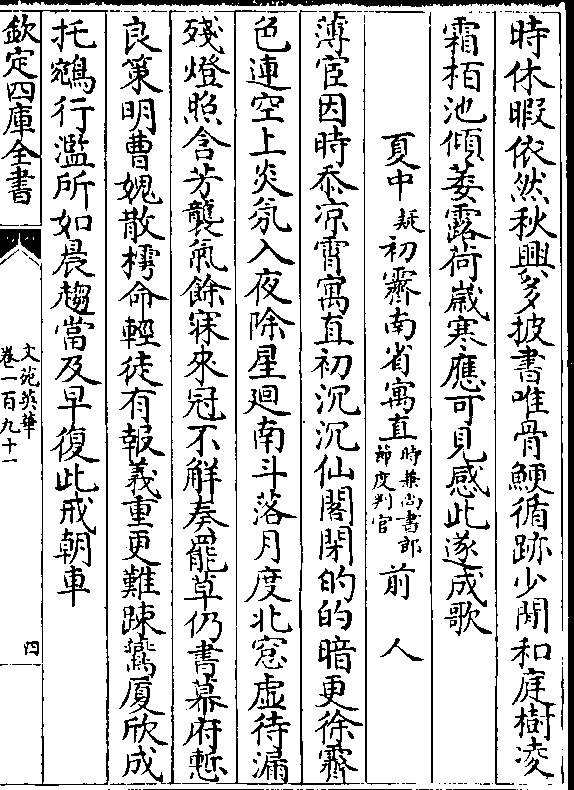 時休暇依然秋興多披書唯骨鯁循跡少閒和庭樹凌
霜栢池傾萎露荷歲寒應可見感此遂成歌
夏中疑初霽南省寓直時兼尚書郎節度判官前人
薄宦因時忝凉宵寓直初沉沉仙閣閉的的暗更徐霽
色連空上炎氛入夜除星迴南斗落月度北窓虛待漏
殘燈照含芳襲氣餘寐來冠不解奏罷草仍書幕府慙
良策明曹媿散樗命輕徒有報義重更難踈鷰厦欣成
托鵷行濫所如晨趨當及早復此戒朝車
欽定四庫全書
文苑英華
卷一百九十一
四